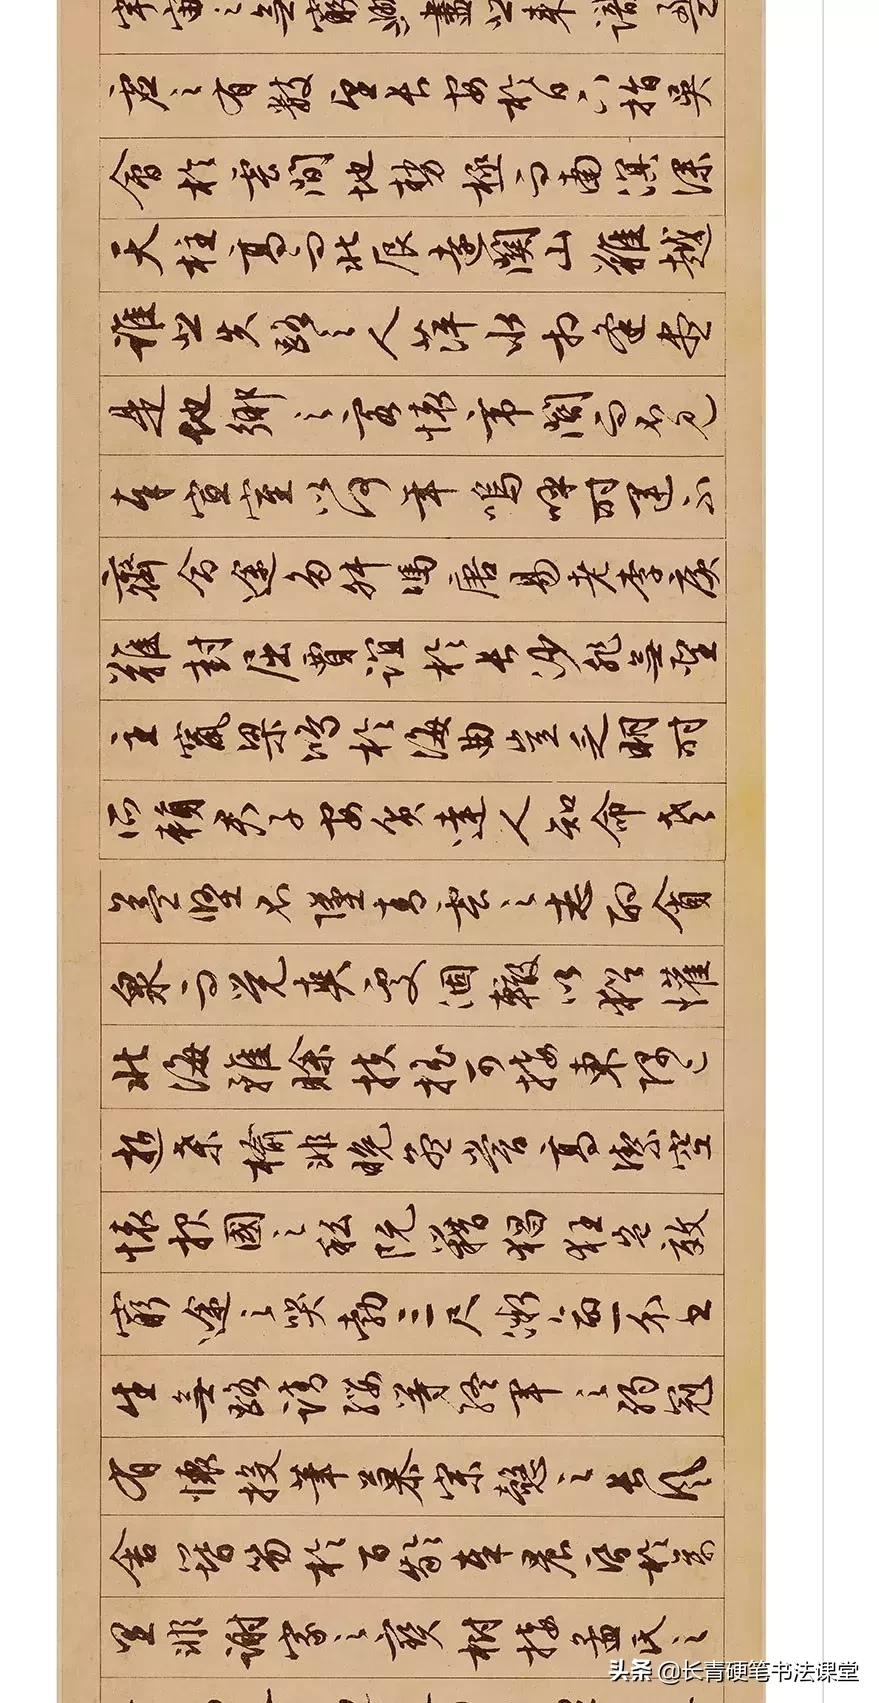 宇宙之無窮興盡悲來識盈
虛之有數望長安於日下指吳
會於雲間地勢極而南溟深
天柱高而北辰遠關山難越
誰悲失路之人萍水相逢盡
是他鄉之客懷帝閽而不見
奉宣室以何年嗚呼時運不
齊命途多舛馮唐易老李廣
難封屈賈誼於長沙非無聖
主竄梁鴻於海曲豈乏明時
所賴君子安貧達人知命老
益堅不墜青雲之志酌貪
泉而覺爽處涸轍以猶懽
北海雖賒扶搖可接東隅已
逝桑榆非晚孟嘗高潔空
懷報國之私阮籍猖狂豈效
窮途之哭勃三尺微命一介書
生無路請纓等終軍之弱冠
有懷投筆慕宗愨之長風
舍簪笏於百齡奉晨昏於萬
里非謝家之寶樹接孟氏之
头条 @长青硬笔书法课堂